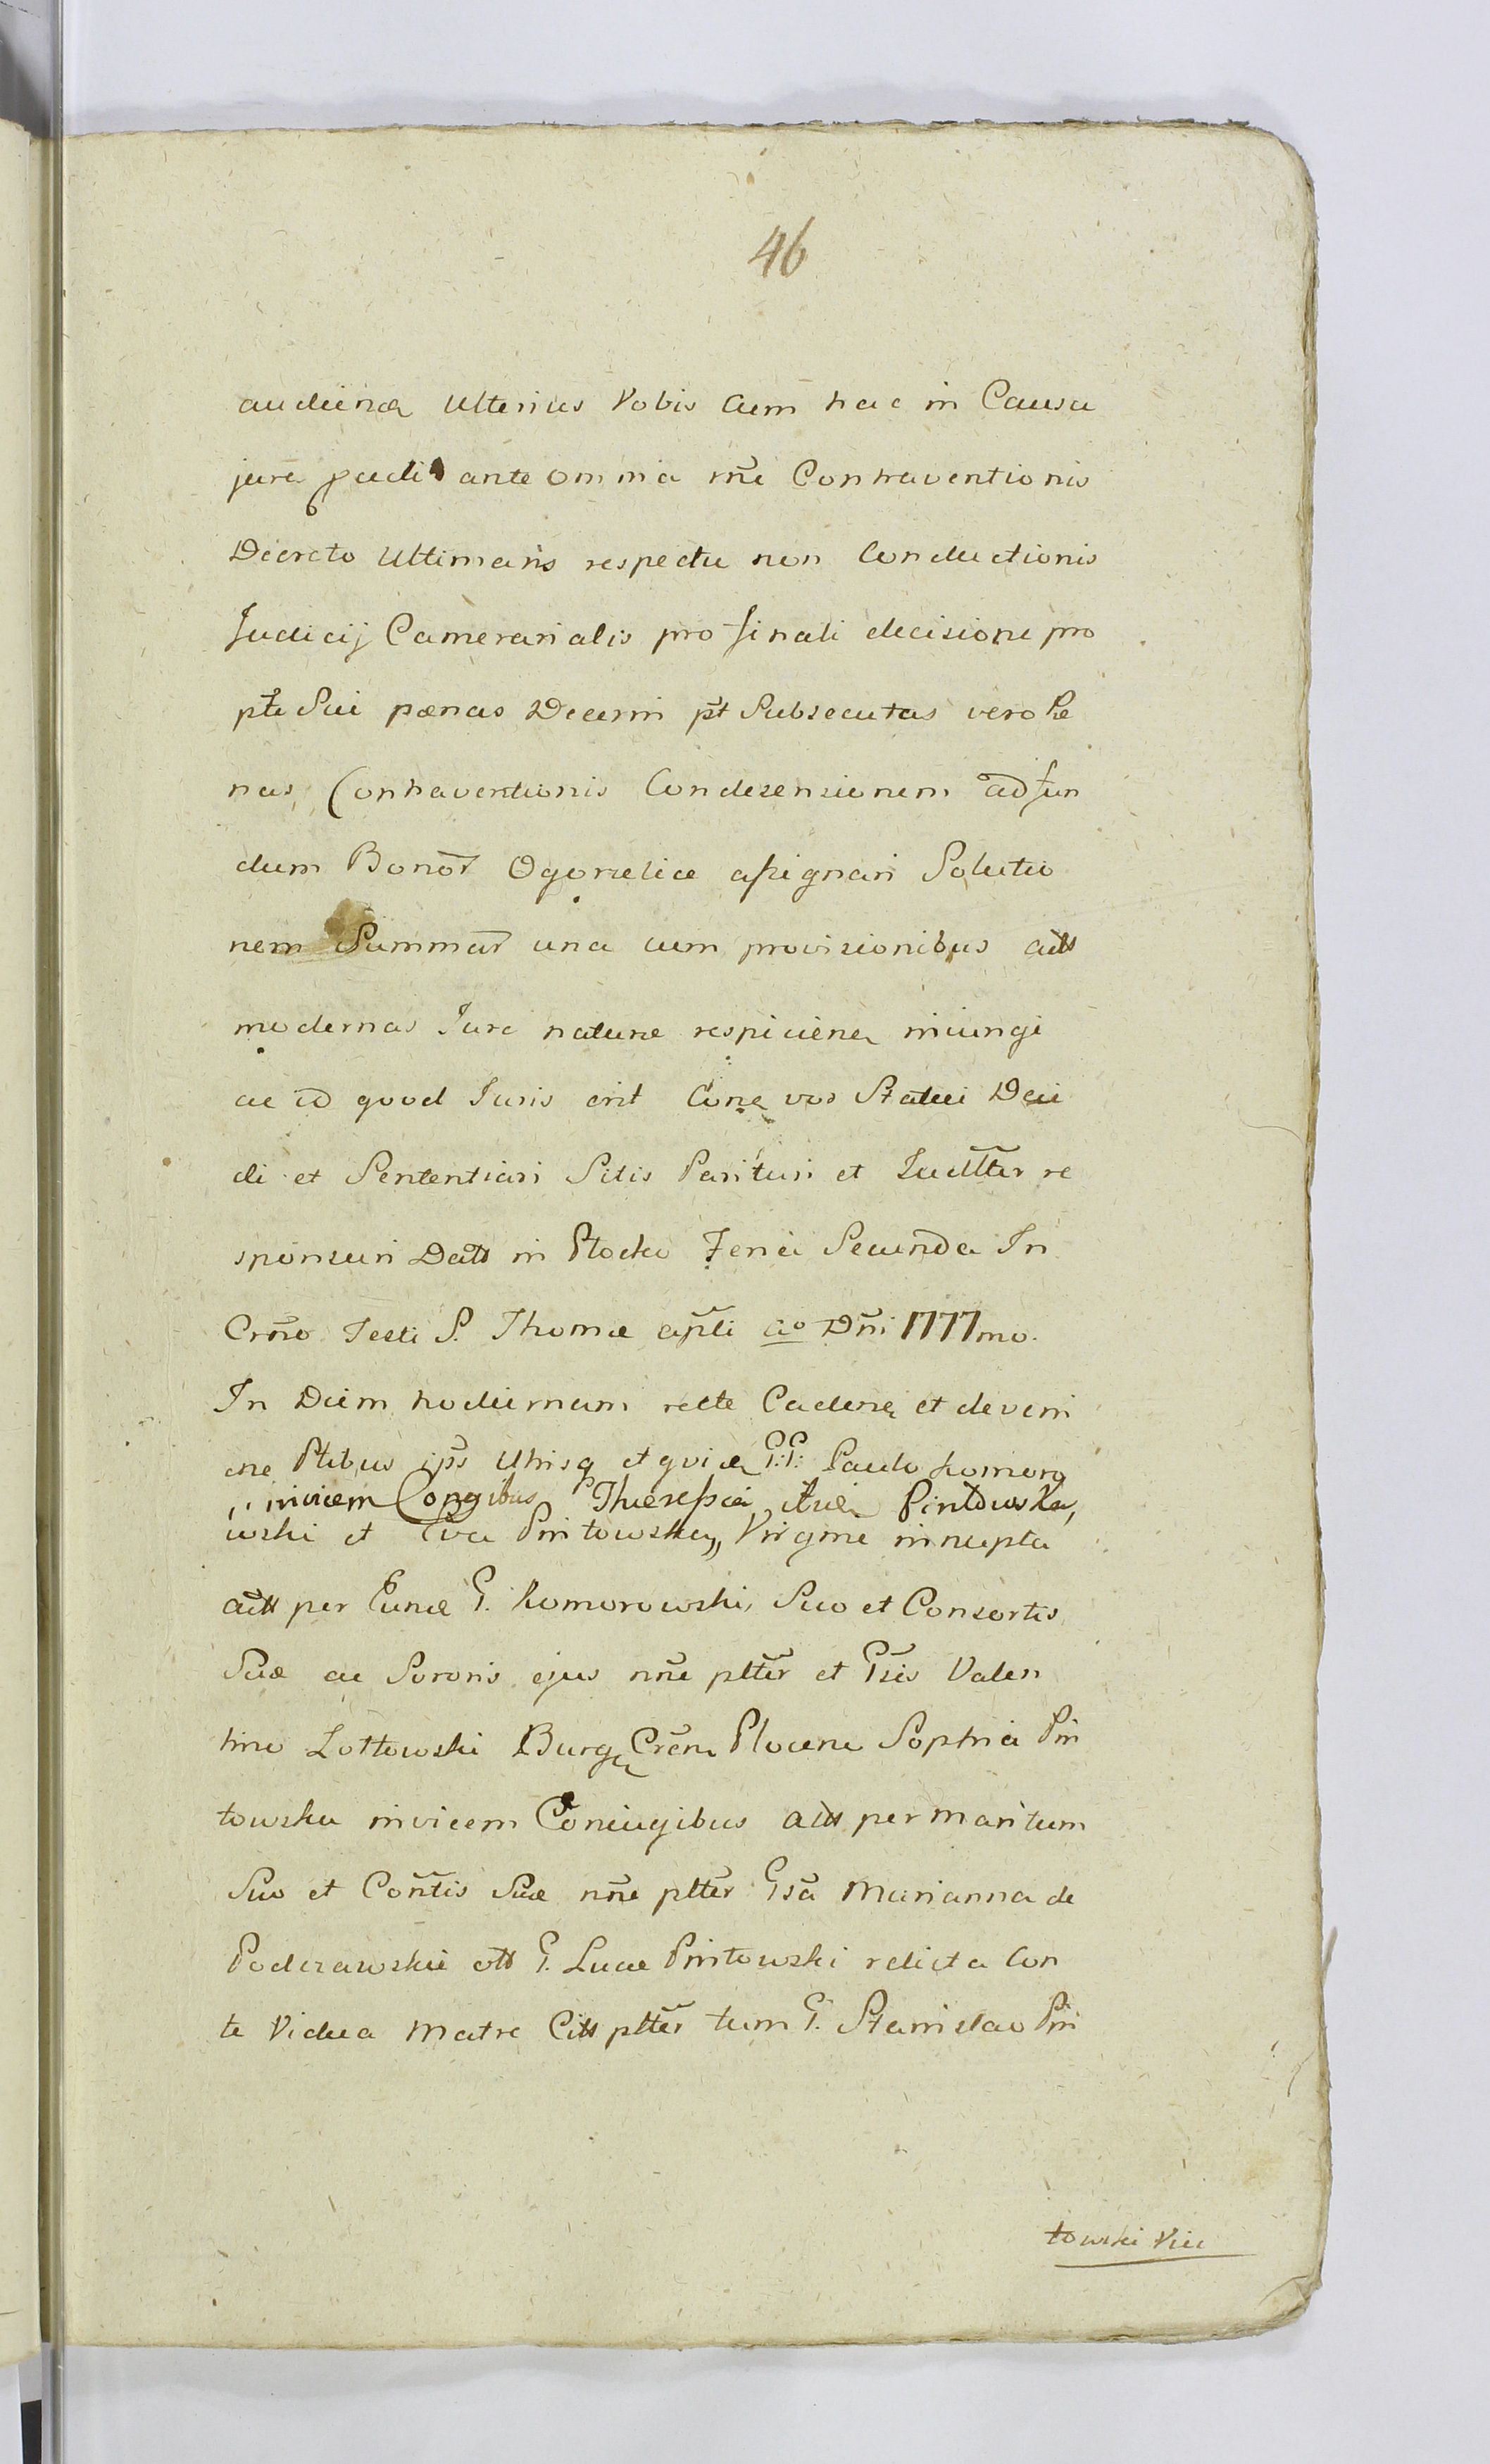 46
audienď Ulterius Vobis Cum hac in Causa
jure ante omnia rñe Contraventionis
Decreto Ultimaris respectu non Conductionis
Judicij Camerarialis pro finali decisione pro
pťe Sui pænas Decerni p̃t Subsecutas vero Pæ
nas Contraventionis Condesensionem ad fun
dum Bonor̃ Ogonelice assignari Solutio
nem Summar̃ una cum provisionibus ad̃s
modernas Jure naturæ respiciene iniungi
ac id quod Juris erit Cone vos Statui Deci
di et Sententiari Sitis Parituri et Judltter re
sponsuri Datt in Plocko Feria Secunda In
Crño Festi S. Thomæ aplĩ ao Dñi 1777mo.
In Diem hodiernam recte Caden et deveni
ene Ptibus ip̃s Utrisq et quidem GG. Paulo Komoro
invicem Conjugibus Theressia Pintowska,
wski et Eva Pintowskie, Virgine innupta
actt per Eund G. Komorowski, Suo et Consortis
Suæ ac Sororis ejus nñe pltẽr et Gsis Valen
tino Lottowski Burg Creñ Plocene Sophia Pin
towska invicem Coniugibus actt per maritum
Suo et Coñtis Suæ nñe pltẽr Gsa Marianna de
Podczawskie ott G. Lucæ Pintowski relicta Con
te Vidua Matre Citt pltẽr tum G. Stanislao Pin
towski Vice